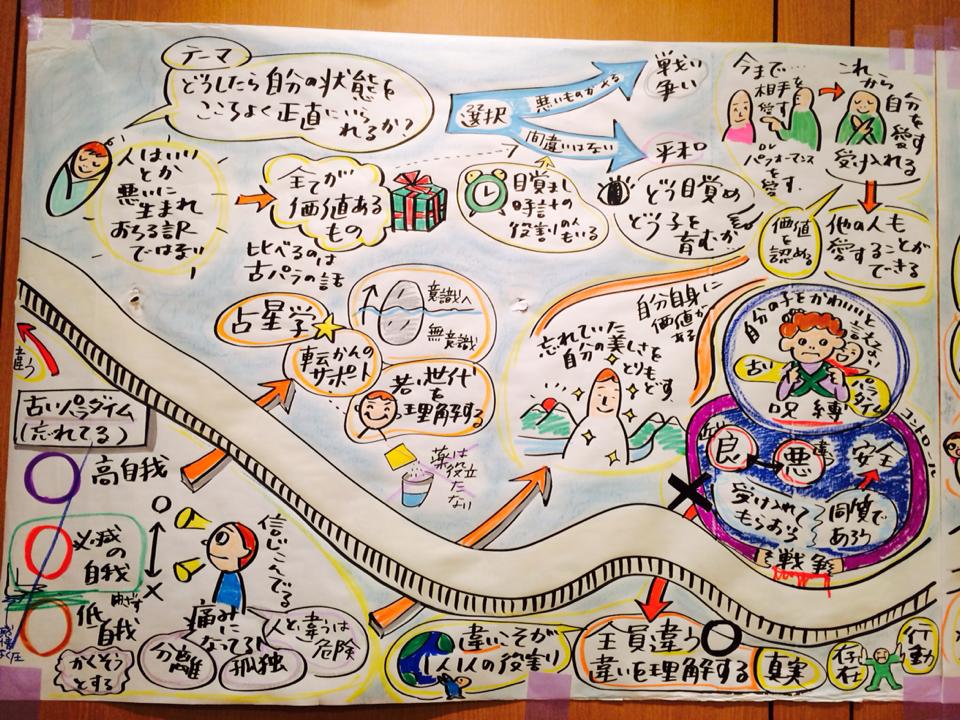 テーマ
どうしたら自分の状態を
こころよく正直にいら
れるか?
人はいい
とか
悪いに
生まれ
おちる訳
ではない
!
全てが
価値ある
もの
比べるのは
古パラの話
選択
悪いものがある
間違いはない
戦い
争い
平和
目覚まし
時計の
役割の人
もいる
どう目覚め
どう子を
育むか
今まで…
相手を
愛す
or
パフォーマンス
を愛す.
これ
から
自分
を愛す
受け入れる
価値
を認める
他の人も
愛することが
できる
占星学
転かんの
サポート
意識へ
無意識
若い世代
を
理解する
薬は
役立
たない
自分自身に
価値が
ある
忘れていた
自分の美しさを
とりも
どす
自分の子をかわいいと
言えない
古い
パラ
ダイム
呪縛
コントロール
良
悪
安全
受け入れて
もらおう
同質で
あろう
戦争
違う
古いパラダイム
(忘れてる)
高自我
必滅の
自我
低自我
かくそう
とする
○
×
信じこんでる
痛みに
なってる!
分離
孤独
人と違うは
危険
違いこそが
1人1人の役割
全員違う
違いを理解する
真実
存在
行動